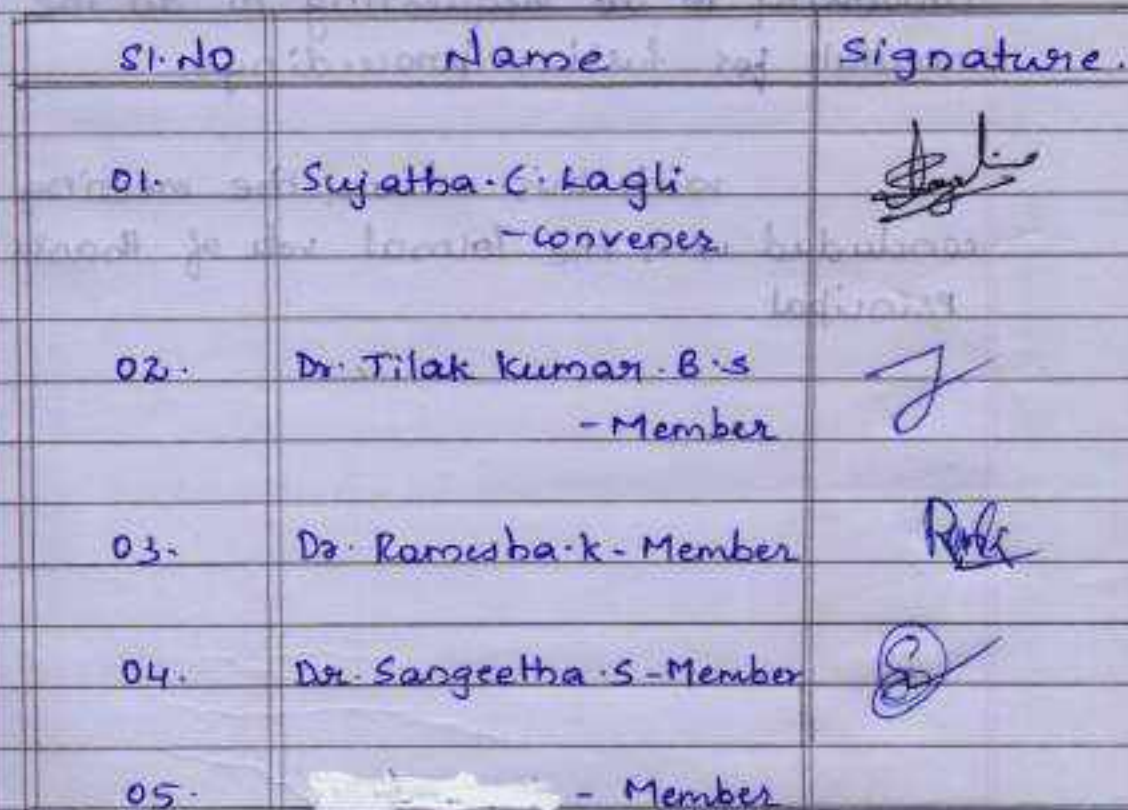 Sl.No Name Signature.
01. Sujatha.C.Lagli
-Convener
02. Dr. Tilak Kumar.B.S
-Member
03. Dr. Ramesha.k - Member
04. Dr. Sangeetha.S-Member
05. - Member